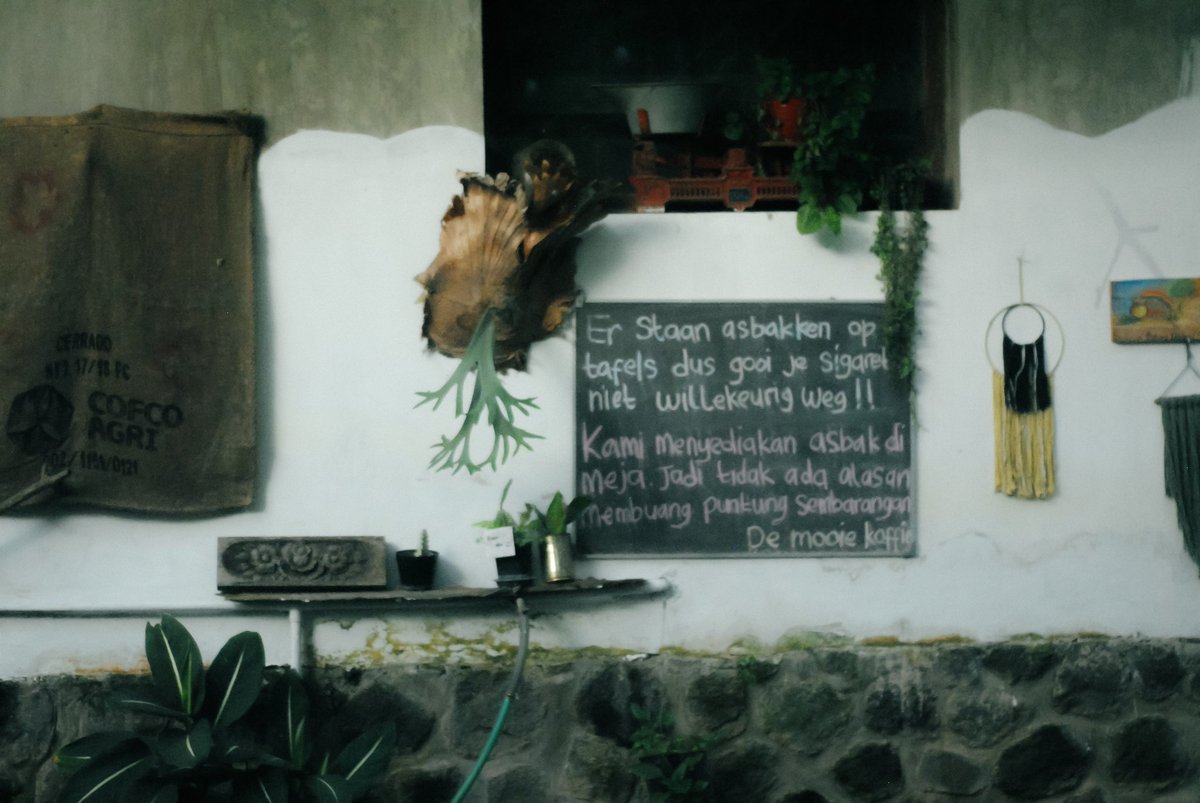 CERRADO
NY2 17/18 FC
COFCO
AGRI
Er Staan asbakken op
tafels dus gooi je sigaret
niet willekeurig weg!!
Kami menyediakan asbak di
meja. Jadi tidak ada alasan
membuang puntung sembarangan
De mooie koffie